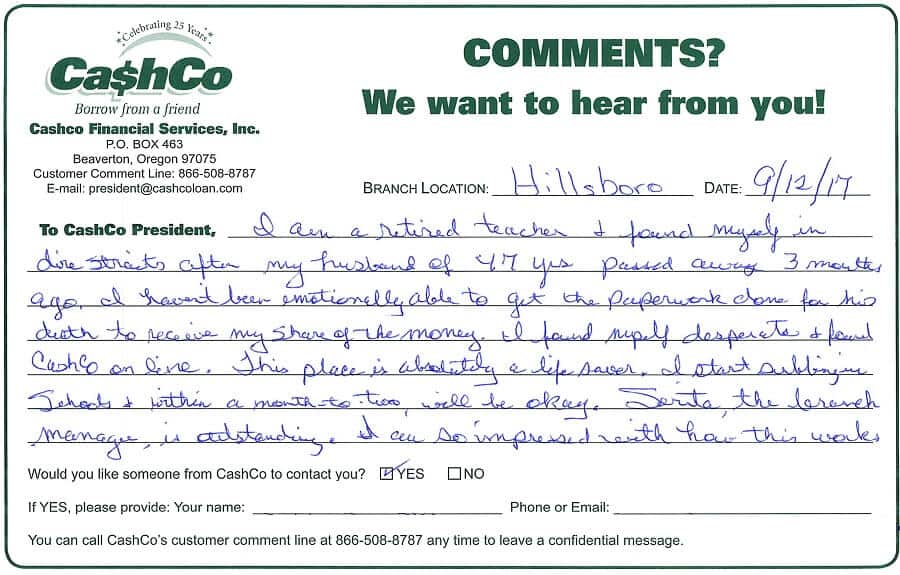 *Celebrating 25 Years*
Ca$hCo
Borrow from a friend
Cashco Financial Services, Inc.
P.O. BOX 463
Beaverton, Oregon 97075
Customer Comment Line: 866-508-8787
E-mail: president@cashcoloan.com
COMMENTS?
We want to hear from you!
BRANCH LOCATION: Hillsboro DATE: 9/12/17
To CashCo President, I am a retired teacher & found myself in
dire straits after my husband of 47 yrs passed away 3 months
ago. I haven't been emotionally able to get the paperwork done for his
death to receive my share of the money. I found myself desperate & found
CashCo on line. This place is absolutely a life saver. I start subbing in
Schools & within a month to two, will be okay. Serita, the branch
manager, is outstanding. I am so impressed with how this works
Would you like someone from CashCo to contact you? YES NO
If YES, please provide: Your name: Phone or Email:
You can call CashCo's customer comment line at 866-508-8787 any time to leave a confidential message.